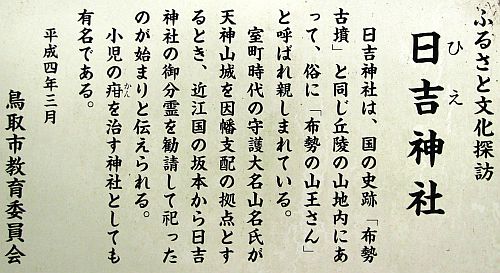 ふるさと文化探訪
ひえ
日吉神社
日吉神社は、国の史跡「布勢
古墳」と同じ丘陵の山地内にあ
って、俗に「布勢の山王さん」
と呼ばれ親しまれている。
室町時代の守護大名山名氏が
天神山城を因幡支配の拠点とす
るとき、近江国の坂本から日吉
神社の御分霊を勧請して祀った
のが始まりと伝えられる。
かん
小児の疳を治す神社としても
有名である。
平成四年三月
鳥取市教育委員会